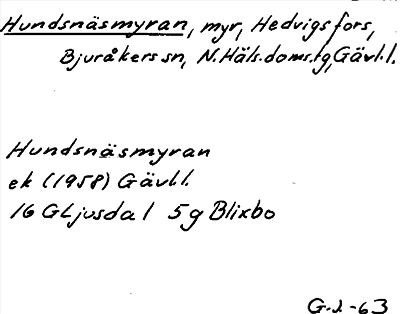 Hundsnäsmyran, myr, Hedvigsfors,
Bjuråkers sn, N.Häls.doms.tg, Gävl.l.
Hundsnäsmyran
ek (1958) Gävl.l.
16 G Ljusdal 5g Blixbo
G.J-63